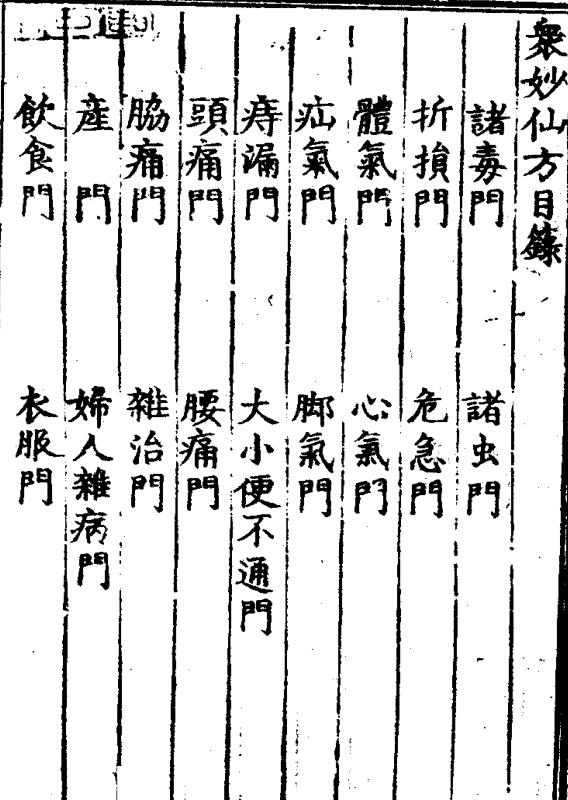 衆妙仙方目錄
諸毒門　諸虫門
折損門　危急門
體氣門　心氣門
疝氣門　脚氣門
痔漏門　大小便不通門
頭痛門　腰痛門
脇痛門　雜治門
産　門　婦人雜病門
飲食門　衣服門